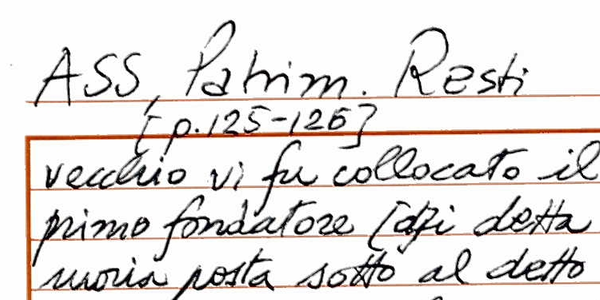 ASS, Patrim. Resti
[p.125-126]
vecchio vi fu collocato il
primo fondatore [di detta
posta sotto al detto